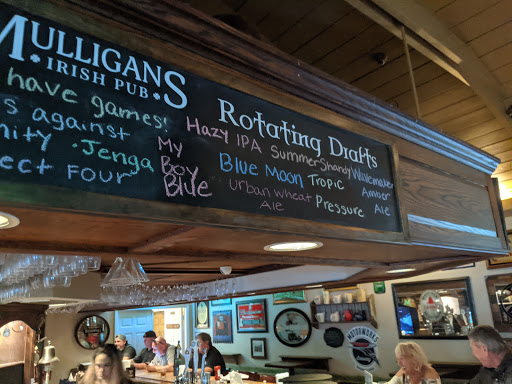 MULLIGANS
· IRISH PUB ·
have games!
s against
nity · Jenga
ect FOUR
Rotating Drafts
Hazy IPA Summer Shandy Wakemaker
My Boy Blue
Blue Moon Tropic Amber
Urban Wheat Pressure Ale
Ale
MOTORWORKS